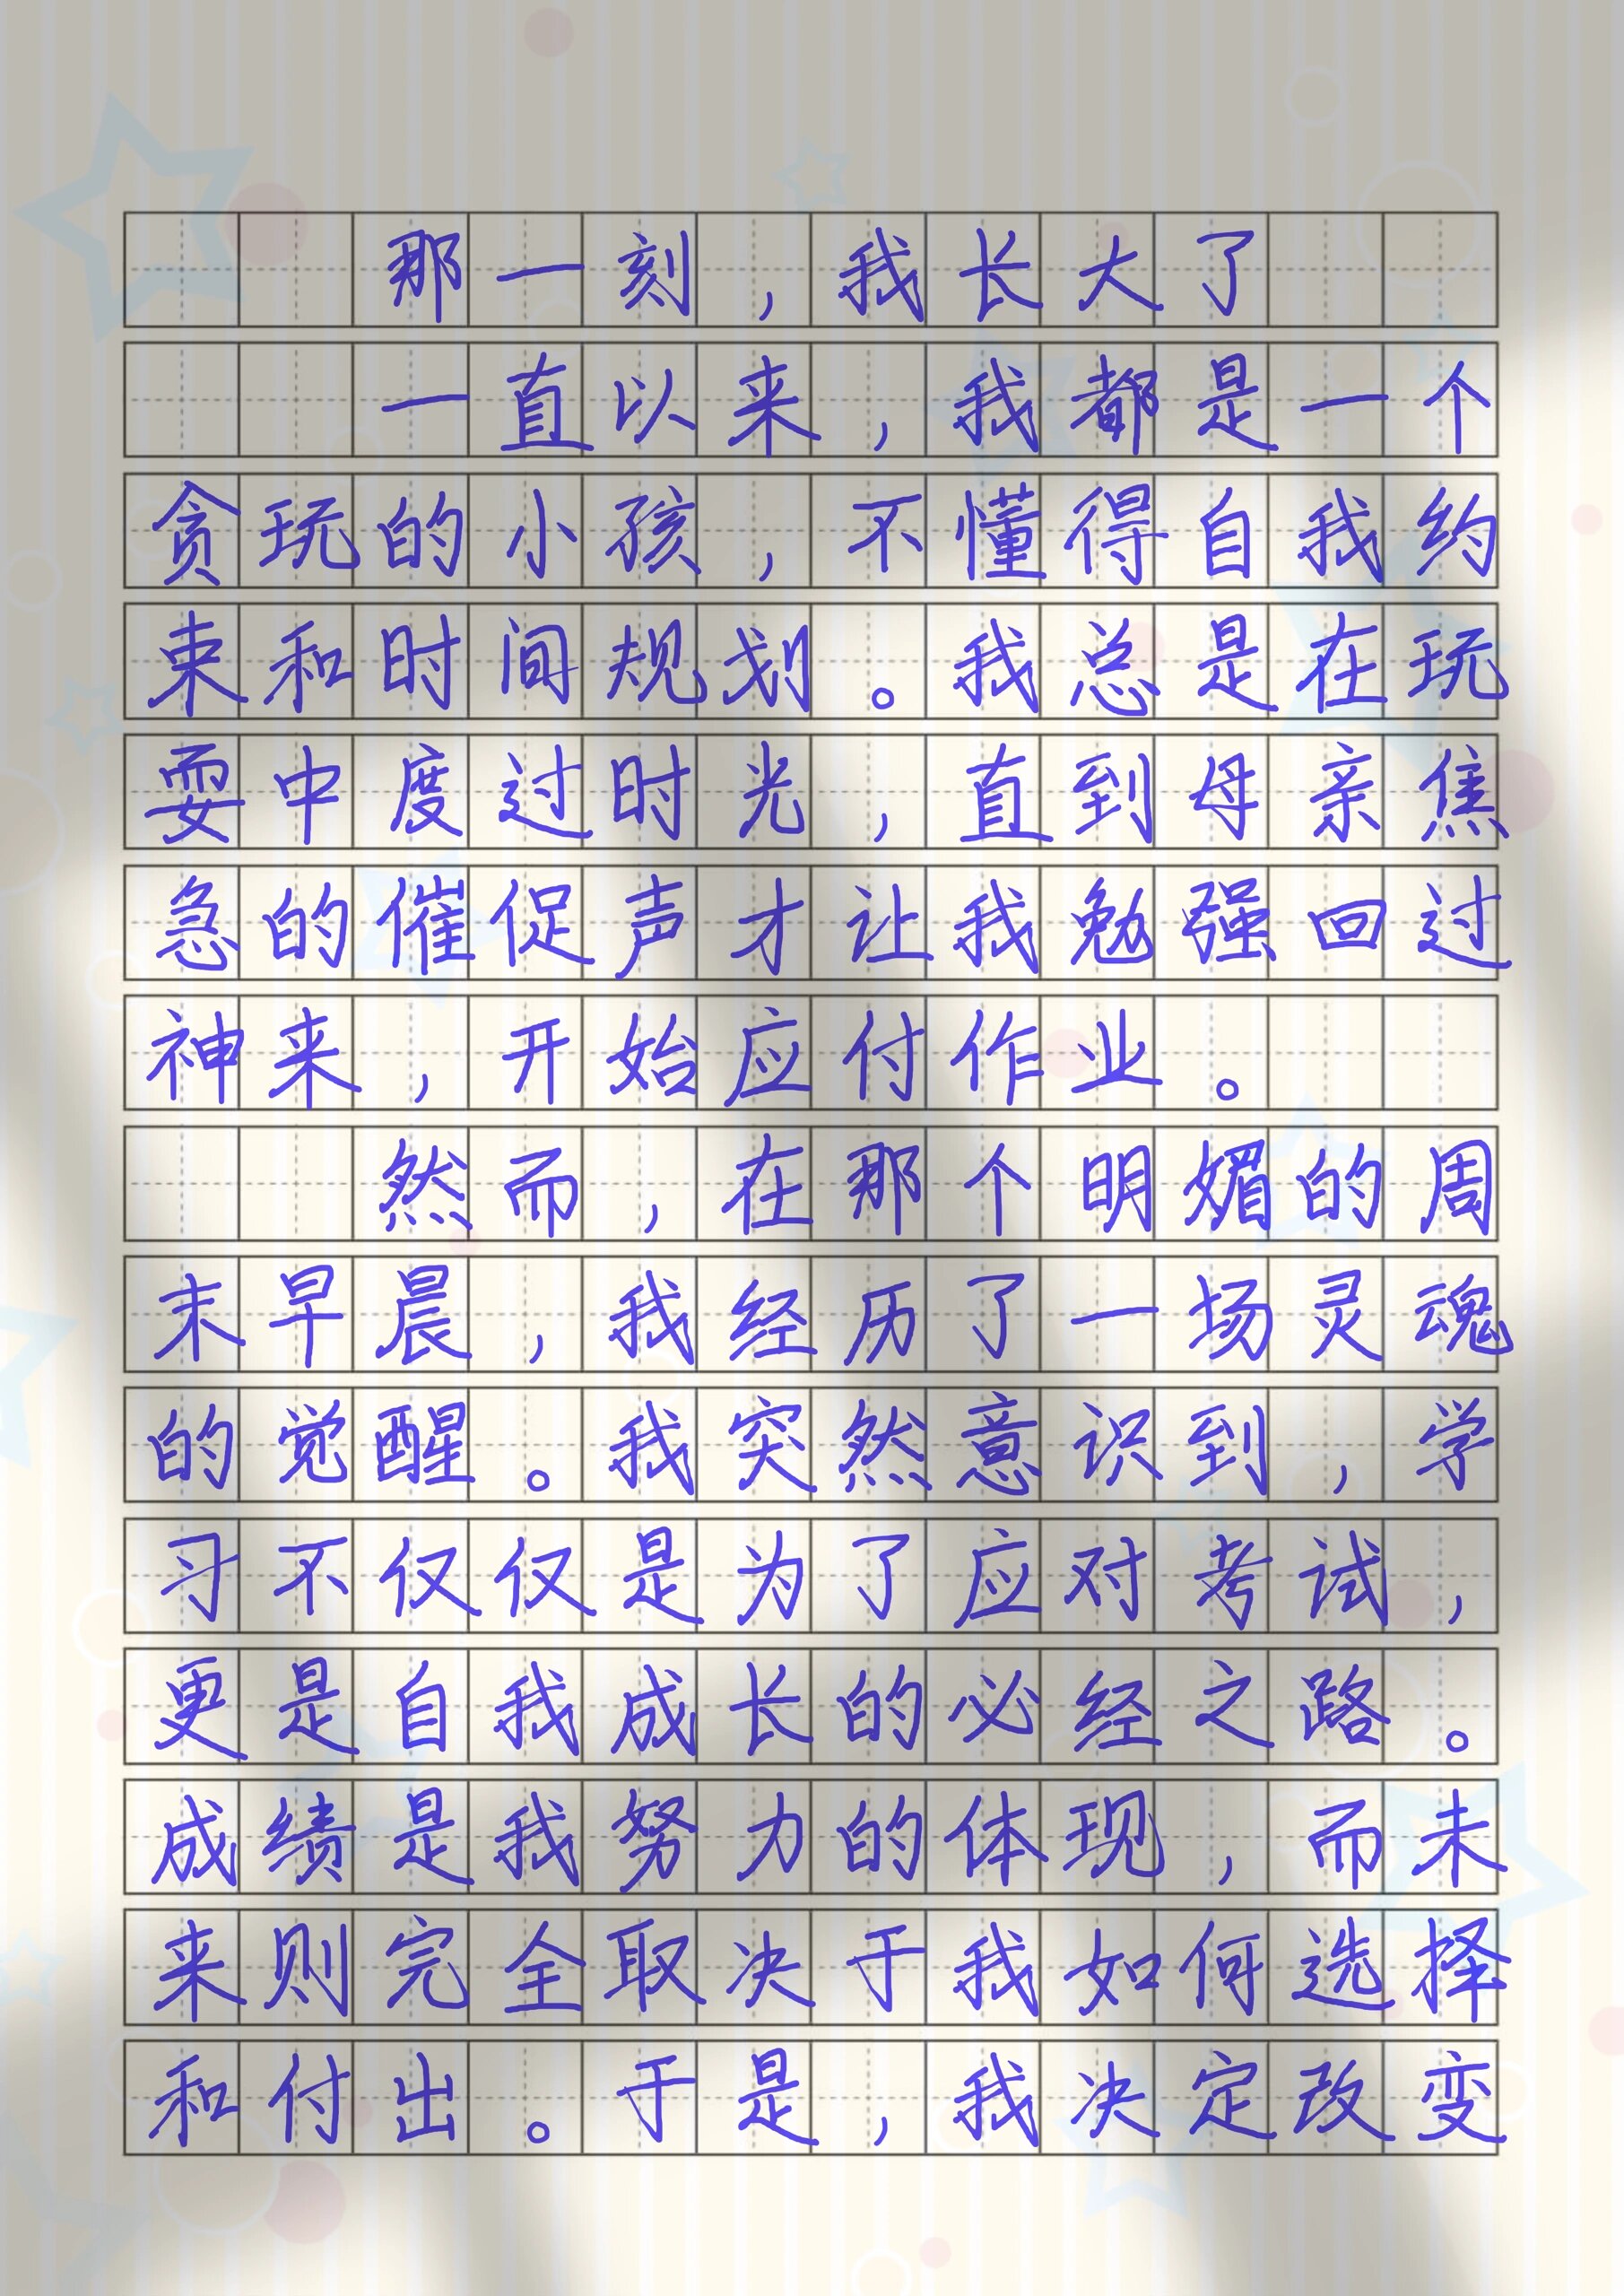 那一刻，我长大了
一直以来，我都是一个
贪玩的小孩，不懂得自我约
束和时间规划。我总是在玩
耍中度过时光，直到母亲焦
急的催促声才让我勉强回过
神来，开始应付作业。
然而，在那个明媚的周
末早晨，我经历了一场灵魂
的觉醒。我突然意识到，学
习不仅仅是为了应对考试，
更是自我成长的必经之路。
成绩是我努力的体现，而未
来则完全取决于我如何选择
和付出。于是，我决定改变